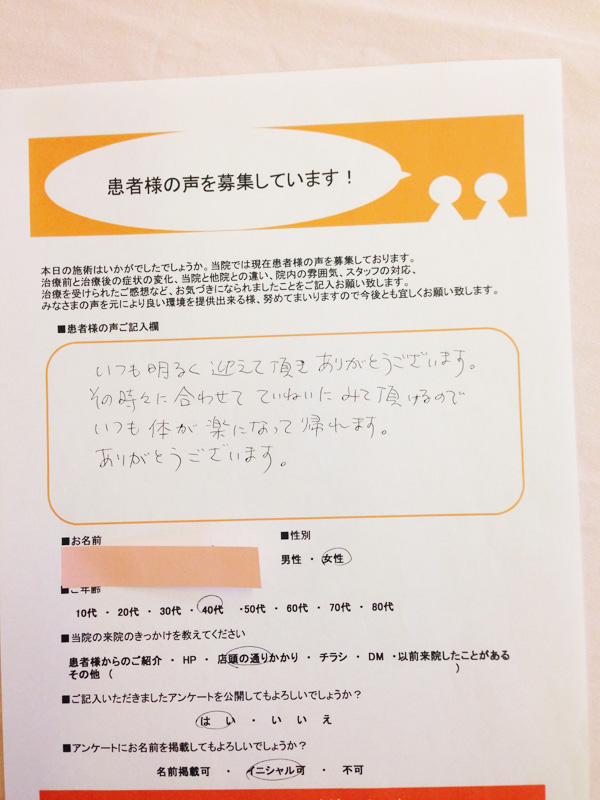 患者様の声を募集しています！
本日の施術はいかがでしたでしょうか。当院では現在患者様の声を募集しております。
治療前と治療後の症状の変化、当院と他院との違い、院内の雰囲気、スタッフの対応、
治療を受けられたご感想など、お気づきになられましたことをご記入お願い致します。
みなさまの声を元により良い環境を提供出来る様、努めてまいりますので今後とも宜しくお願い致します。
■患者様の声ご記入欄
いつも明るく迎えて頂きありがとうございます。
その時々に合わせてていねいにみて頂けるので
いつも体が楽になって帰れます。
ありがとうございます。
■お名前
■性別
男性・女性
■ご年齢
10代・20代・30代・40代・50代・60代・70代・80代
■当院の来院のきっかけを教えてください
患者様からのご紹介・HP・店頭の通りかかり・チラシ・DM・以前来院したことがある
その他（ ）
■ご記入いただきましたアンケートを公開してもよろしいでしょうか？
はい・いいえ
■アンケートにお名前を掲載してもよろしいでしょうか？
名前掲載可・イニシャル可・不可